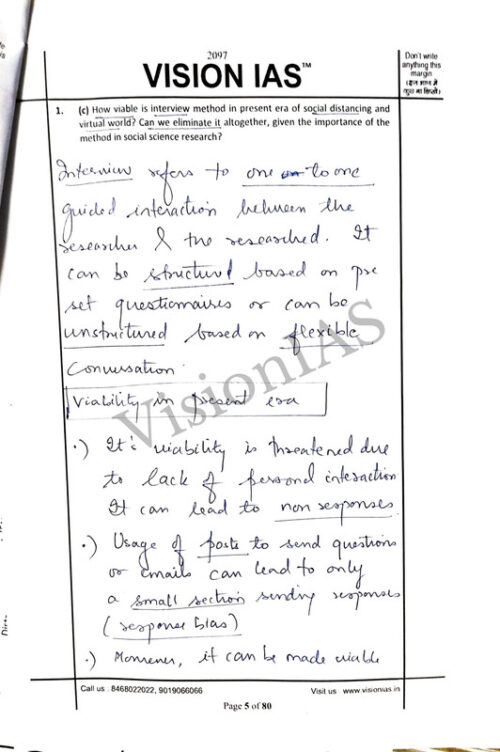 2097
VISION IAS™
Don't write
anything this
margin
(इस भाग में
कुछ ना लिखें)
1. (c) How viable is interview method in present era of social distancing and
virtual world? Can we eliminate it altogether, given the importance of the
method in social science research?
Interview refers to one to one
guided interaction between the
researcher & the researched. It
can be structured based on pre
set questionnaires or can be
unstructured based on flexible
conversation.
Viability in present era
·) It's viability is threatened due
to lack of personal interaction
It can lead to non responses.
·) Usage of posts to send questions
or emails can lead to only
a small section sending responses
(response bias)
·) Moreover, it can be made viable
VisionIAS
Call us : 8468022022, 9019066066
Visit us www.visionias.in
Page 5 of 80